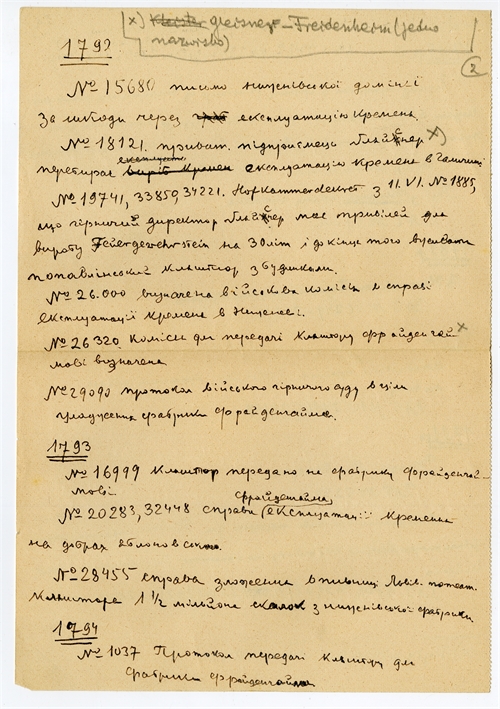 x) gleisner – Freidenheim (jedno
nazwisko)
2
1792
№ 15680 письмо нижнівської домінії
за шкоди через експлуатацію кременя.
№ 18121. приват. підприємець Гляйснер x)
перебирає експлуатацію кременя в Галичині
№ 19741, 33850, 34221. Hofkammerdekret з 11. VI. № 1885,
що гірничий директор Гляйснер має привілей для
виробу Feuergewehrstein на 30 літ і до кінця того вживати
попавлінський кляштор з будинками.
№ 26.000 визначена військова комісія в справі
експлуатації кременя в Нижневі.
№ 26320. Комісія для передачі кляштору Фрайденгай x
мові визначена
№ 29090 протокол військового гірничого суду в ціли
фабрики Фрайденгайма.
1793
№ 16999 Кляштор передано на фабрику Фрайденгай-
мові
Фрайденгайма
№ 20283, 32448 справа експлуатації кременя
на добрах
№ 28455 справа зложення в пивниці Львів.
кляштора 1 1/2 мільйона скалок з нижнівської фабрики
1794
№ 1037 Протокол передачі кляштору для
фабрики Фрайденгайма